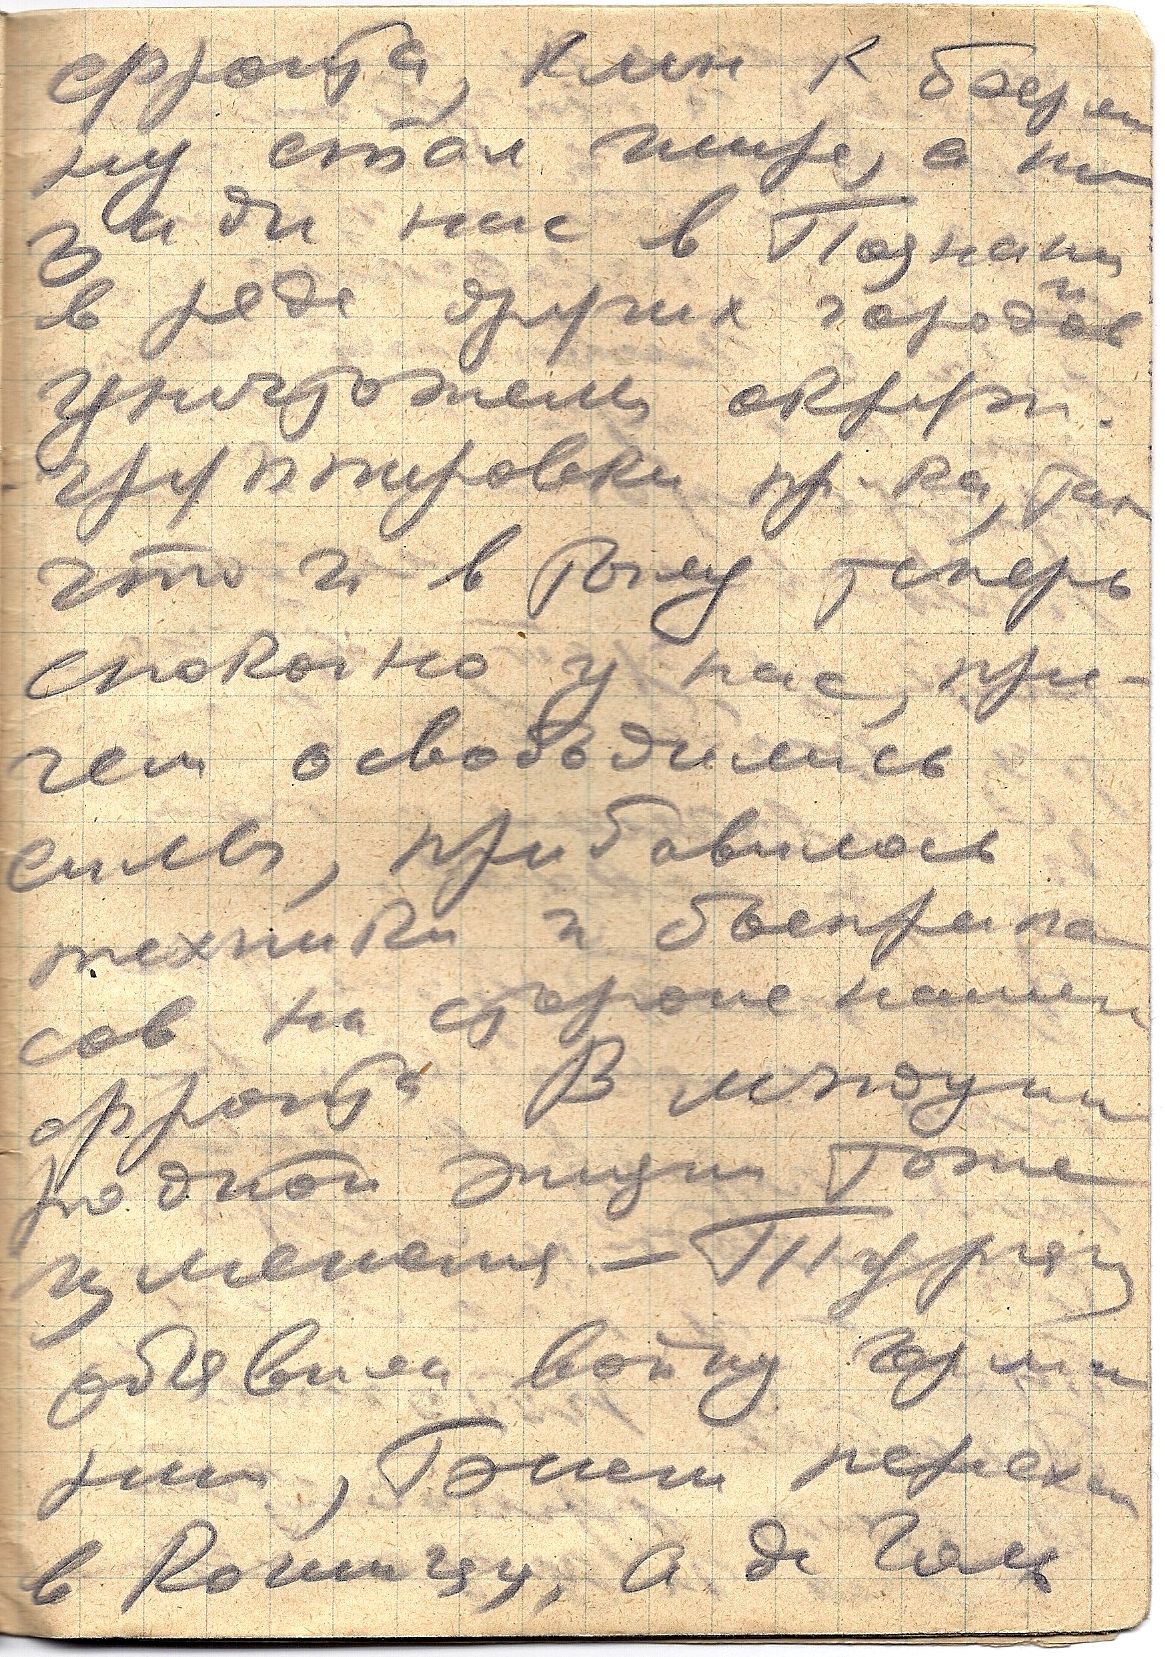 фронта, клин к Берли
ну стал шире, а по
зади нас в Познани
и
в ряде других городов
уничтожены окруж.
группировки пр-ка, так
что и в тылу теперь
спокойно у нас, при-
чем освободились
силы, прибавилось
техники и боеприпа
сов на стороне нашего
фронта В междуна
родной жизни тоже
изменения – Турция
объявила войну Герма
нии, Бенеш переехал
в а де Голль